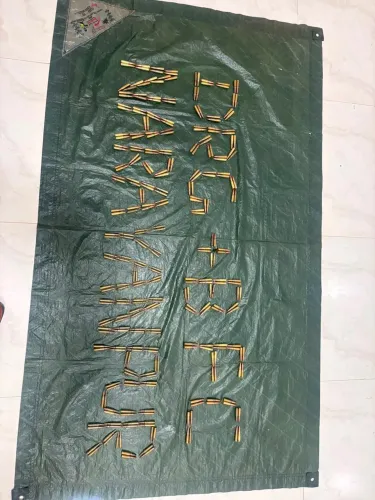 DRG+BFC
NARAYANPUR